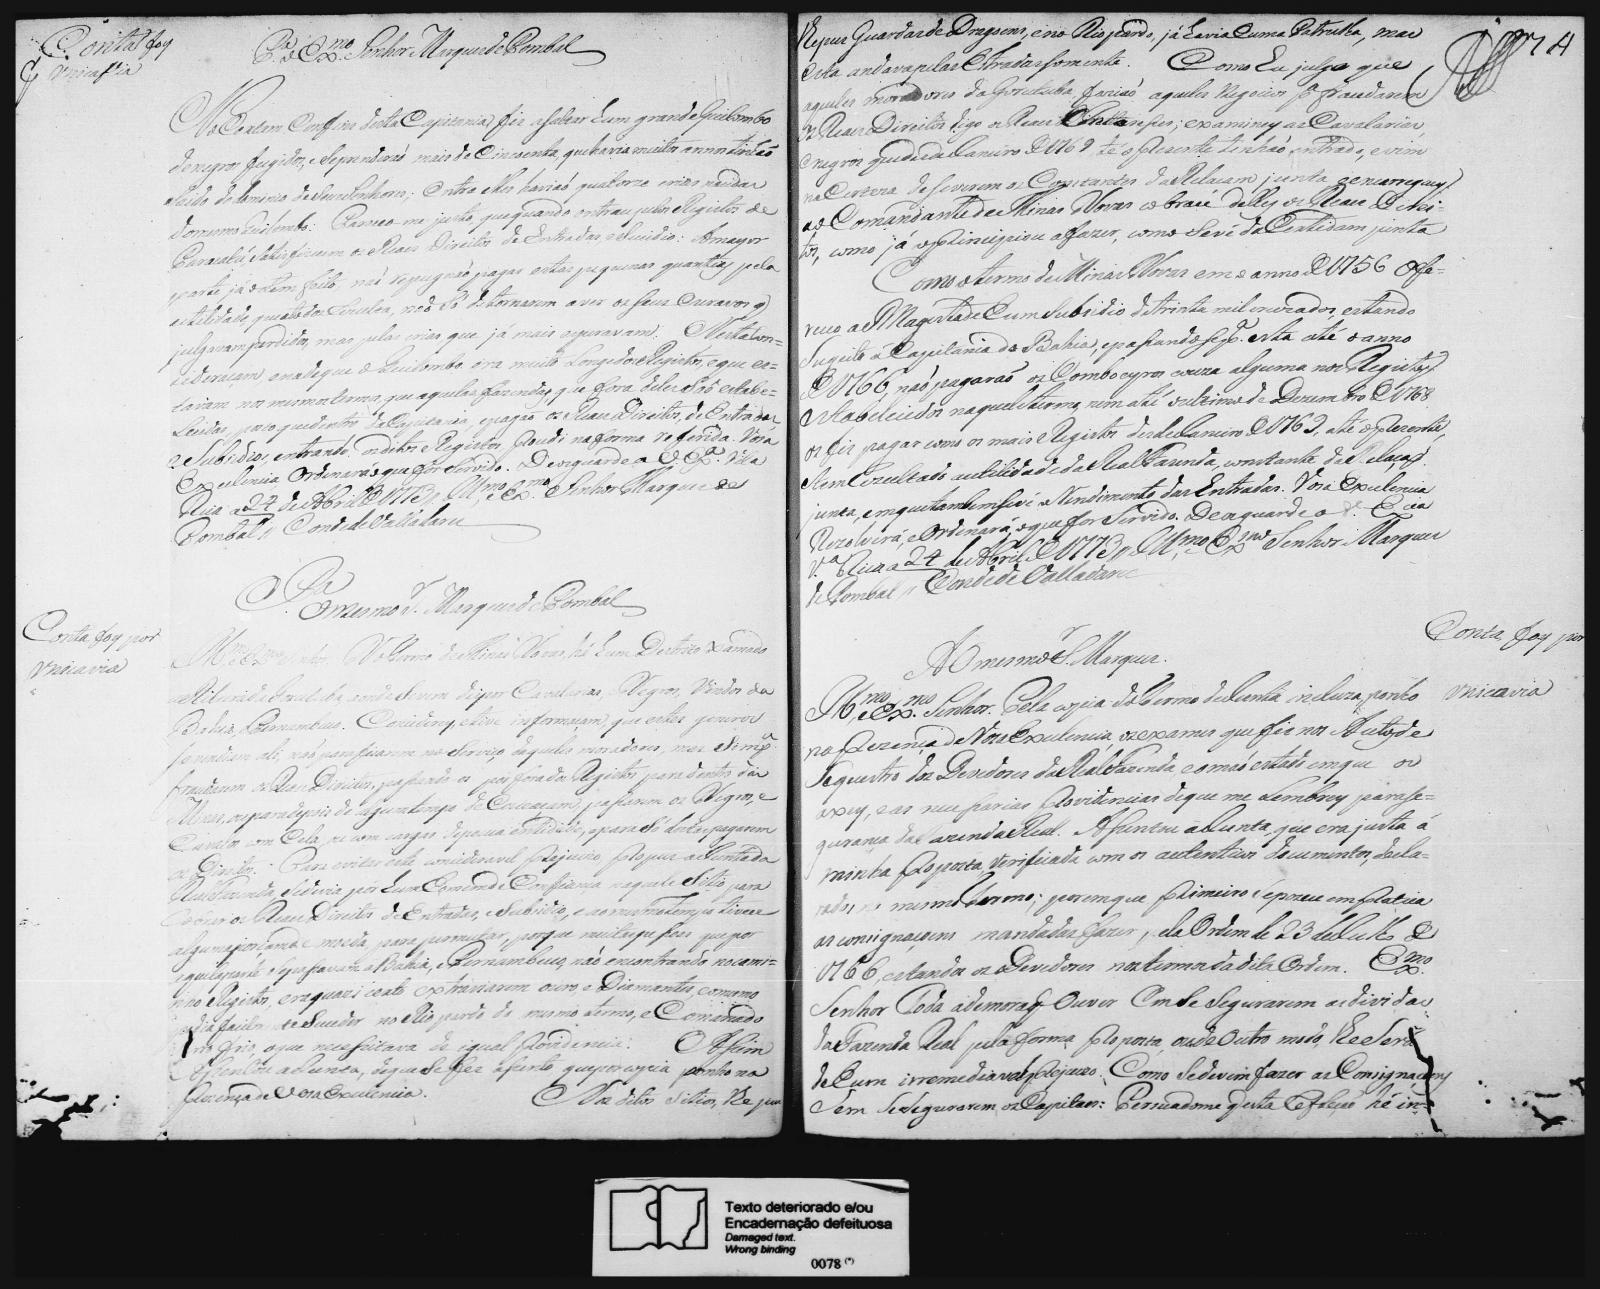 Conta foy
Vnica via
P.ª o Ex.mo Senhor Marques de Pombal
Nos Certam Confins desta Capitania, fiz asaltar hum grande Quilombo
de negros fugidos, e Seprenderaõ mais de Cincoenta, que havia muitos annos tinhaõ
Saido do dominio de Seus Senhores; entre elles haviaõ quatorze crias nacidas
do mesmo Quilombo: Pareceo me justo, que quando entrau pelos Registos de
Paracatú, Satisfizecem os Reaes Direitos de Entradas, e Subsidio: A mayor
parte já o tem feito, naõ repugnaõ pagar estas pequenas quantias pela
utilidade, que atodos rezulta, naõ Só de tornarem a ver os seus escravos q
julgavam perdidos, mas pelas crias que já mais esperavam. Nesta con-
cideraçam, e na de que o Quilombo era muito Longe dos Registos, e que es-
tavam nos mesmos termos, que aquellas fazendas, q fora deles Saõ estabe-
Lecidas, posto que dentro da Capitania, e pagaõ os Reaes Direitos, de Entradas,
e Subsidio, entrando, os ditos Registos, Procedi na forma referida. Vossa
Excelencia Ordenará o que for Servido. Deos guarde a V. Ex.ª Vila
Rica a 24 de Abril de 1773 // Ill.mo e Ex.mo Senhor Marques de
Pombal // Conde de Valladares
P.ª
O mesmo S.r Marques de Pombal
Conta foy por
Vnica via
Ill.mo e Ex.mo Senhor. No Termo de Minas Novas, hé hum Destrito xamado
a Ribeira de Gorutuba, onde Serum depor Cavalarias, e Negros, Vindos da
Bahia, e Pernambuco. Considerey, e tive informaçam, que estes generos
se vendiam ali, naõ para ficarem no Serviço daqueles moradores, mas Simp.ª
fraudarem os Reaes Direitos, passando os por fora dos Registos, para dentro das
Minas, ou para depois de algum tempo de Cituaçam, passarem os Negros, e
Cavalos com Cela, ou com cargas de pouca entidade, e para Só destes pagarem
os Direitos. Para evitar este concideravel prejuizo, propuz a Junta da
Real Fazenda Sedevia pôr hum homem de Confiança naquele Sitio para
Cobrar os Reaes Direitos de Entradas, e Subsidio, e ao mesmo tempo tivece
alguma porçam de moeda, para permutar, porque muitas pessoas que por
aquela parte se passavam á Bahia, e Pernambuco, naõ encontrando no cami-
nho Registos, era quazi certo extraviarem ouro, e Diamantes, e o mesmo
podia facilmente Suceder no Rio pardo do mesmo termo, e Comarca do
Serro frio, o que necessitava de igual providencia: Assim
Assentou a Junta, de que se fez assento que por copia ponho na
prezença de Vossa Excelencia. Nos ditos Sitios, he puz
74
He puz Guardas de Dragoens, e no Rio pardo, já havia huma Patrulha, mas
esta andava pelas Estradas somente. Como Eu julgo que
aqueles moradores da Gorutuba, faziaõ aqueles Negocios p.ª fraudarem
os Reaes Direitos digo os Reaes Interesses; examiney as Cavalarias,
e negros que desde Janeiro de 1769 té o prezente tinhaõ entrado, e vim
na Certeza de Severem os Constantes da Relaçam junta, e encarreguey
ao Comandante de Minas Novas cobrace deles os Reaes Direi-
tos, como já o principiou a fazer, como Se vé da Certidam junta
Como o termo de Minas Novas em o anno de 1756 Ofe-
receo a S Magestade hum Subsidio de trinta mil cruzados, estando
Sugeito á Capitania da Bahia, e passando se p.ª esta até o anno
de 1766, naõ pagaraõ os Comboeyros couza alguma nos Registos
estabelecidos naquele termo, nem até o ultimo de Dezembro de 1768
os fiz pagar como os mais Registos desde Janeiro de 1769, até o prezente,
e tem rezultado a utilidade da Real Fazenda, constante da Relaçaõ
junta, em que tambem se vé o Rendimento das Entradas. Vossa Excelencia
Rezolverá, e Ordenará o que for Servido. Deos guarde a V. Ex.ª
V.ª Rica a 24 de Abril de 1773 // Ill.mo e Ex.mo Senhor Marques
de Pombal // Conde de Valladares
Conta foy por
Vnica via
Ao mesmo S.r Marques.
Ill.mo e Ex.mo Senhor. Pela copia do Termo de Junta incluza, ponho
na prezença de Vossa Excelencia os exames que fiz nos Autos de
Sequestro dos Devedores da Real Fazenda, e o mao estado em que os
axey, e as necessarias Providencias de que me Lembrey para se-
gurança da Fazenda Real. Assentou a Junta, que era justa á
minha proposta verificada com os autenticos documentos, decla-
rados no mesmo Termo; porem que primeiro se pozece em pratica
as consignaçoens mandadas fazer, pela Ordem de 23 de Julho de
1766, estando os Devedores nos termos da dita Ordem. Ex.mo
Senhor Toda a demora q Ouver Em se Segurarem as dividas
da Fazenda Real pela forma proposta, ou de Outro modo, lhe Será
de hum irremediavel prejuizo. Como Sedevem fazer as Consignaçoens
Sem Se Segurarem, os Capitaes: Persuadome q esta Reflexaõ hé in-
Texto deteriorado e/ou
Encadernação defeituosa
Damaged text.
Wrong binding
0078 (*)